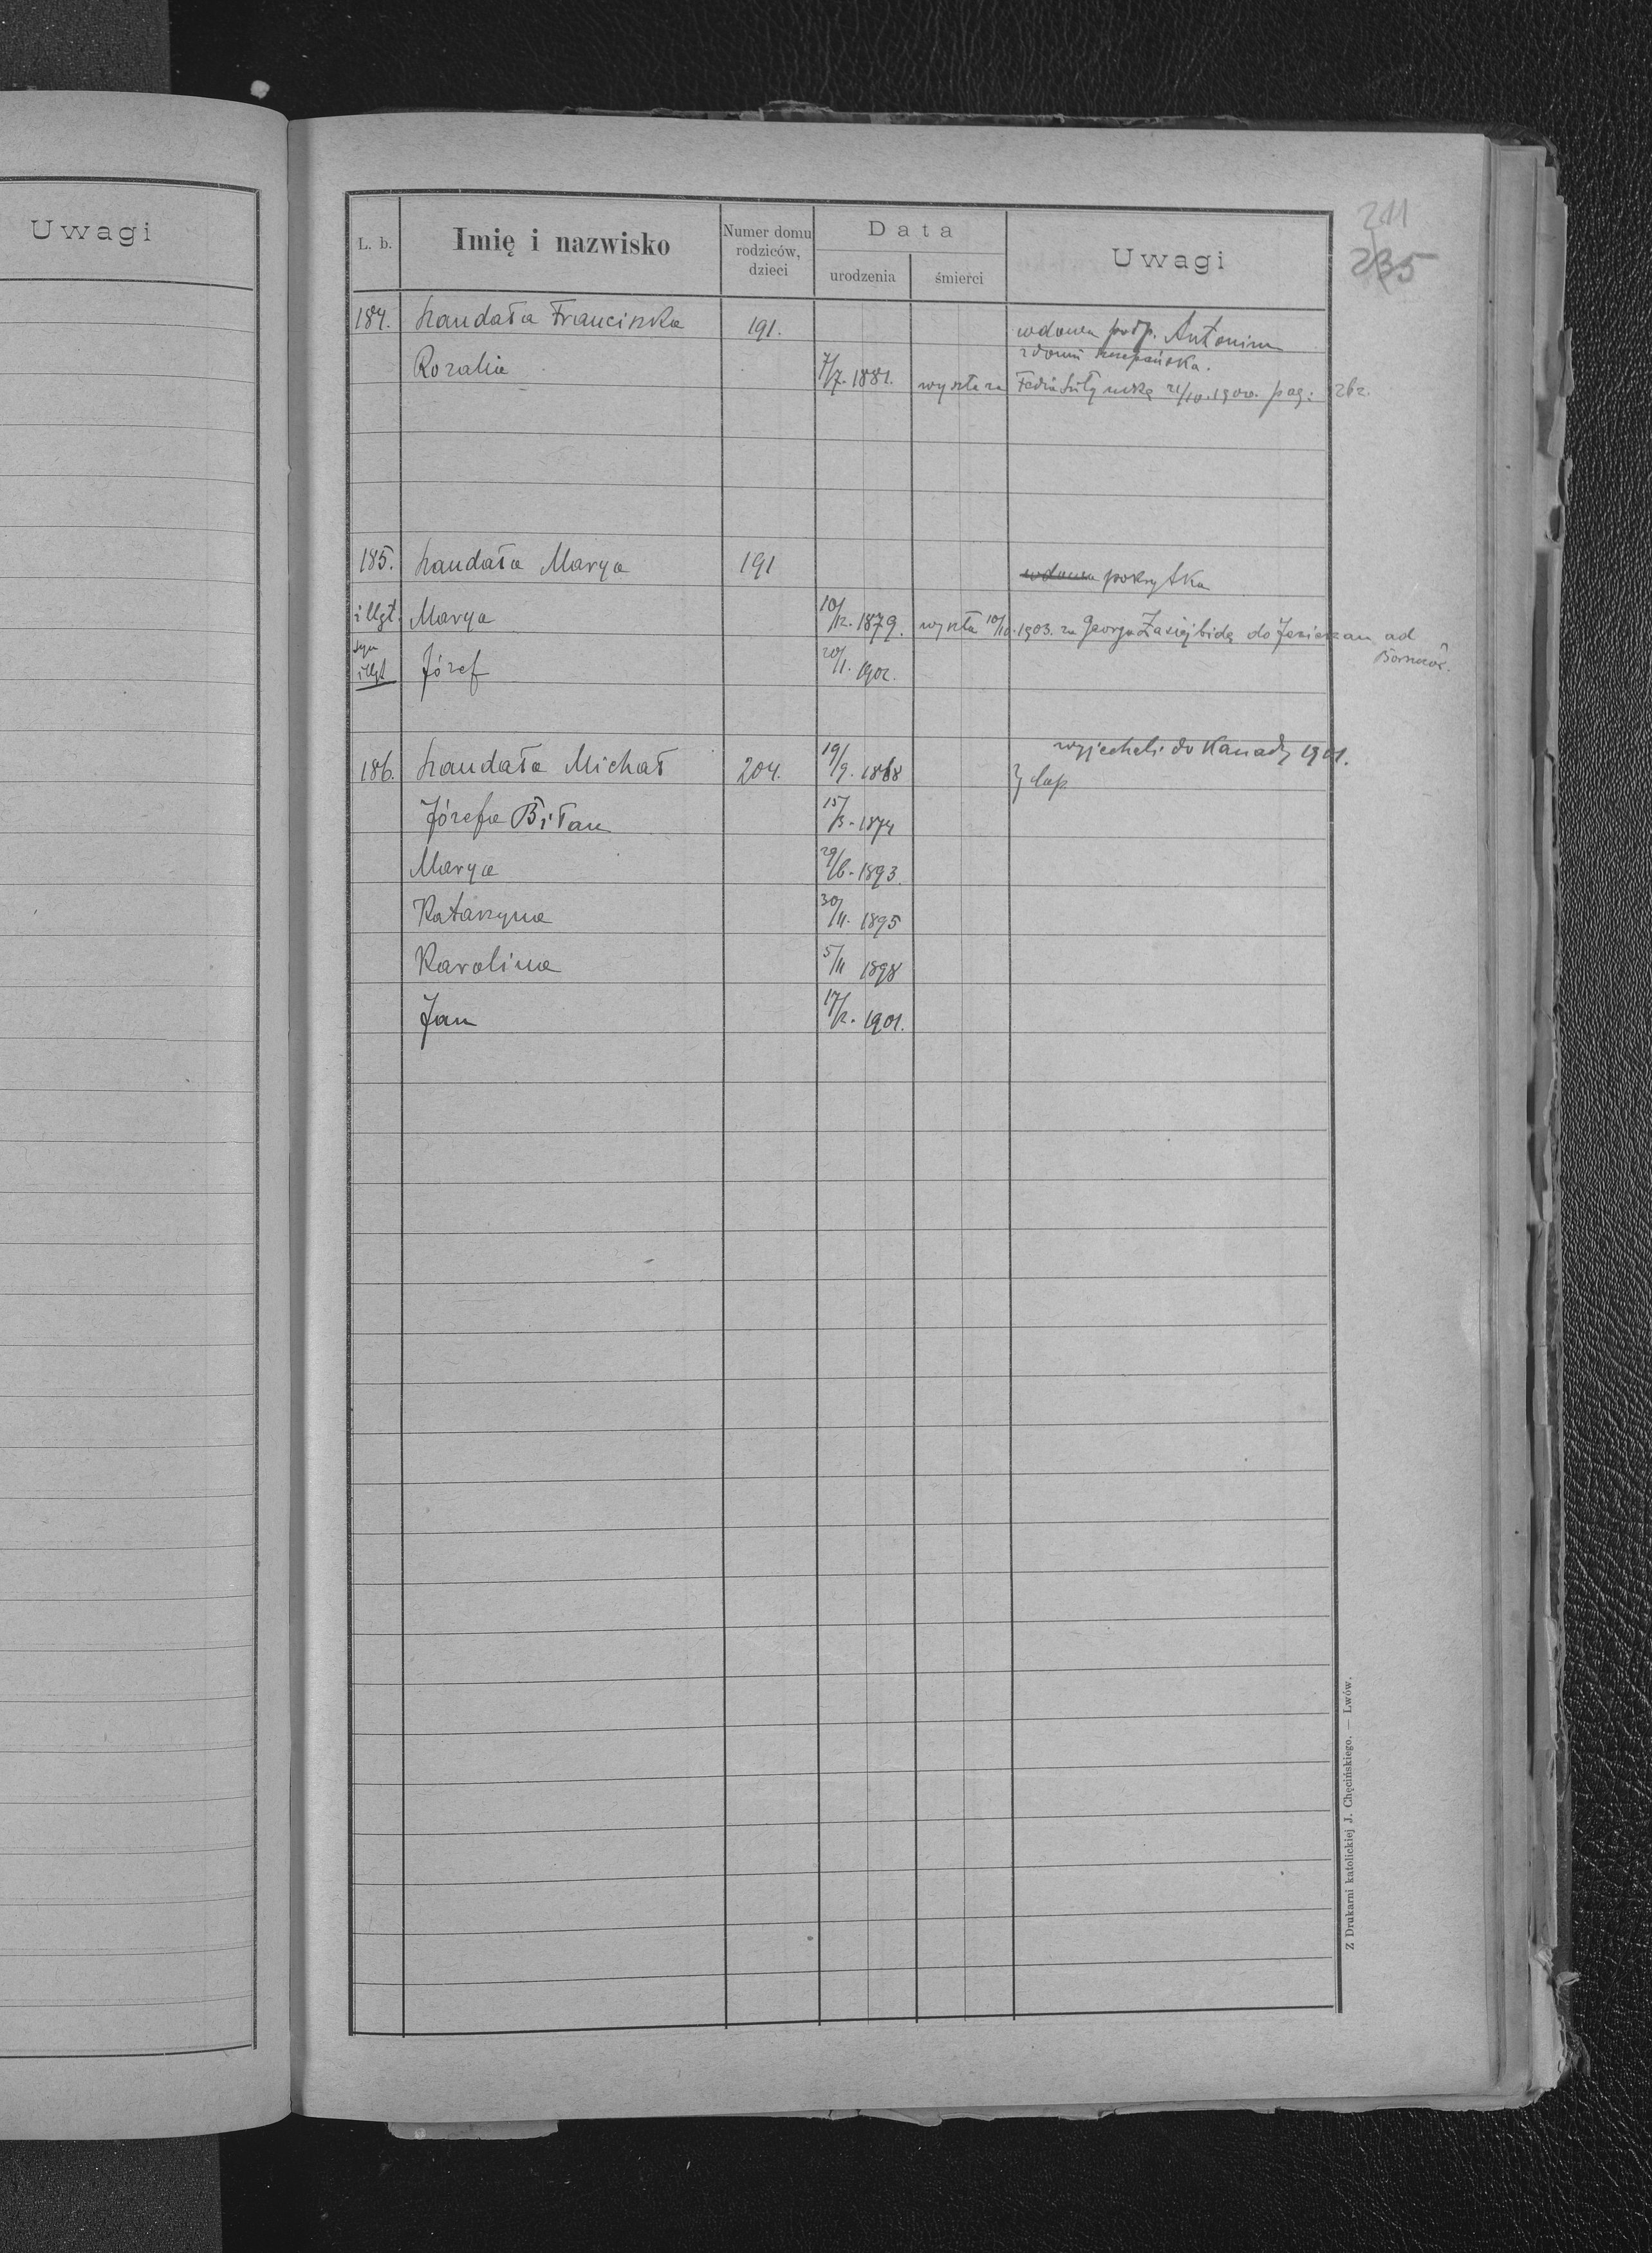 Uwagi
211
235
L. b. Imię i nazwisko Numer domu rodziców, dzieci Data urodzenia śmierci Uwagi
184. Landała Franciszka 191. wdowa po śp. Antonim
z domu
Rozalia 7/7. 1881. wyszła za 21/10. 1900. pag: 262.
185. Landała Marya 191 wdowa pokrytka
illgt. Marya 10/12. 1879. wyszła 10/10. 1903. za Georga do Jezierzan ad
syn
illgt Józef 20/1. 1902.
wyjechali do Kanady 1901.
186. Landała Michał 204. 19/9. 1868
Józefa Biłan 15/3. 1874
Marya 29/6. 1893.
Katarzyna 30/11. 1895
Karolina 5/11 1898
Jan 17/2. 1901.
Z Drukarni katolickiej J. Chęcińskiego. — Lwów.